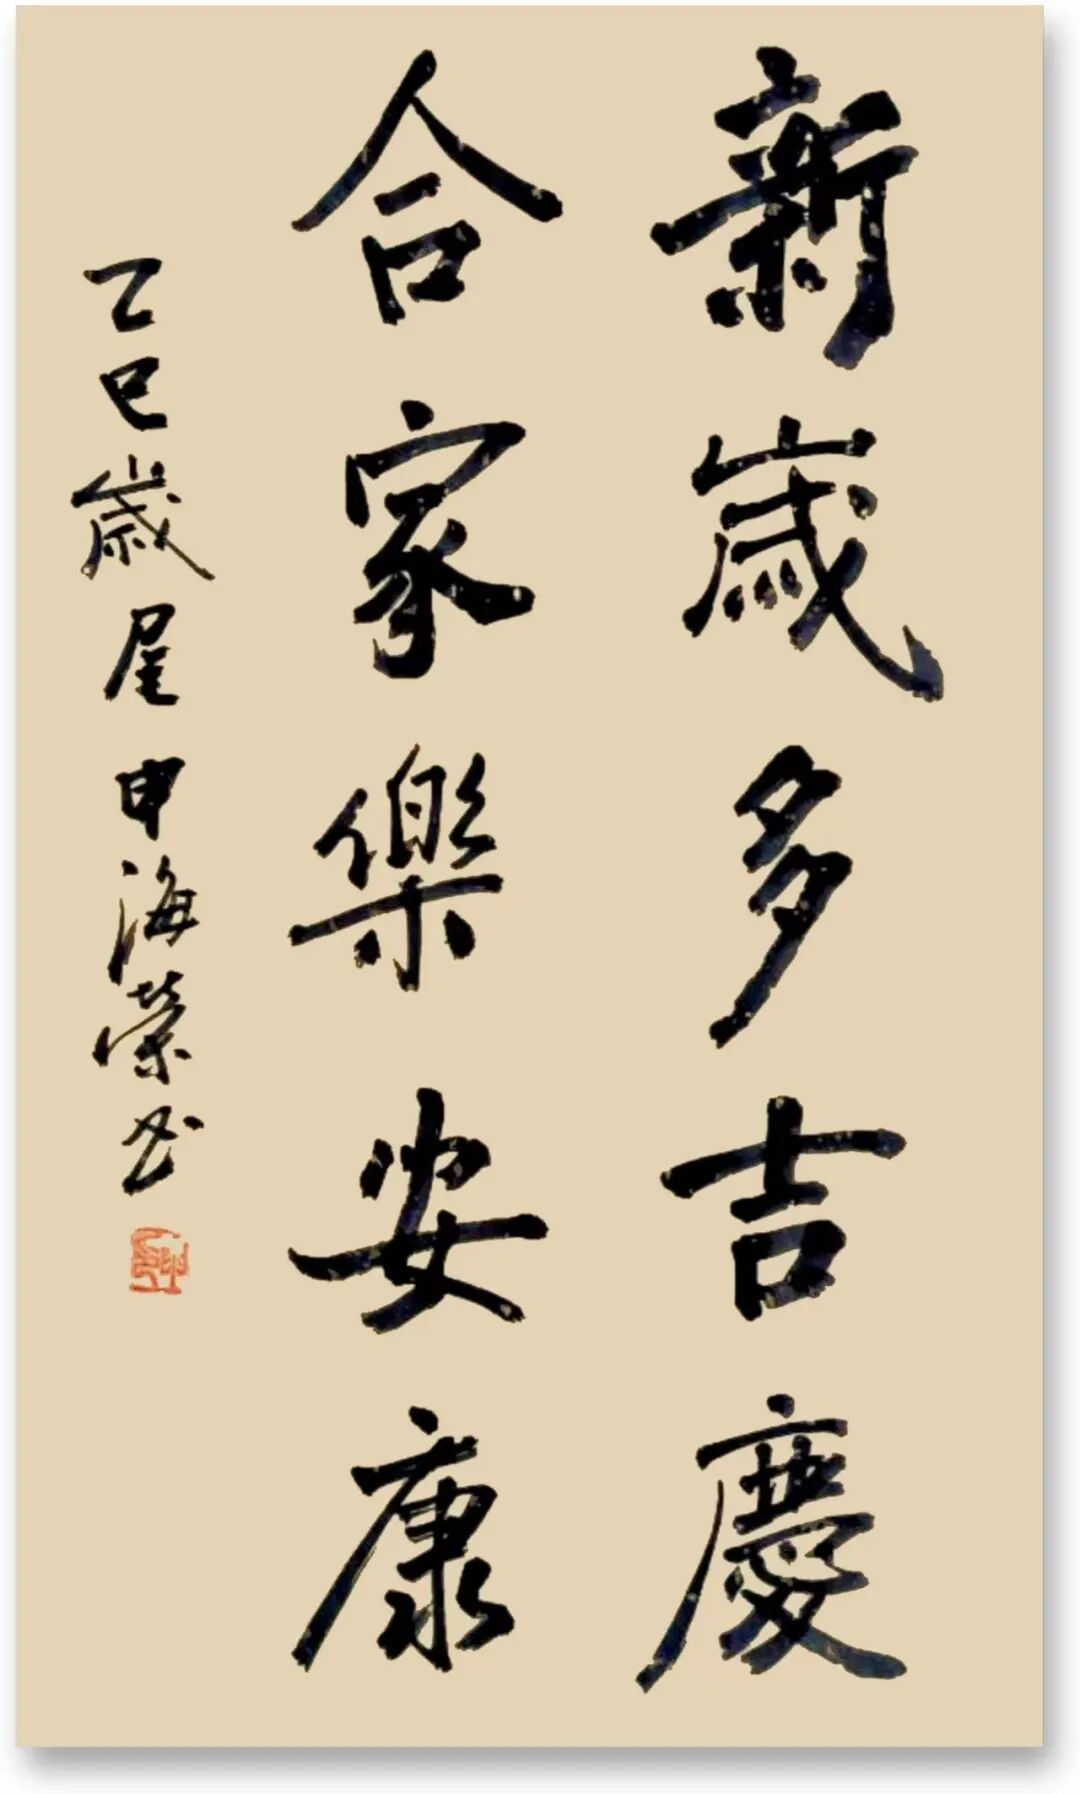 新歲多吉慶
合家樂安康
乙巳歲尾申海榮书